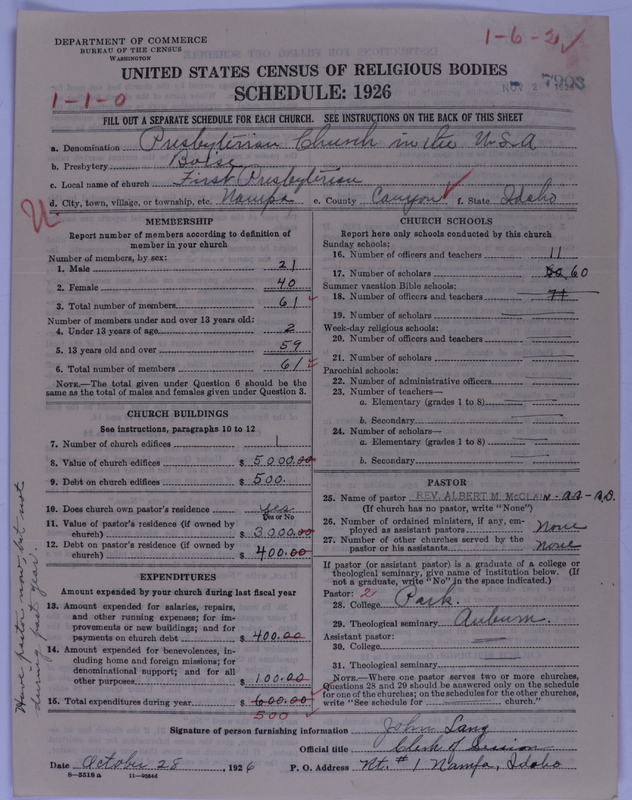 DEPARTMENT OF COMMERCE
BUREAU OF THE CENSUS
WASHINGTON
1-6-2
UNITED STATES CENSUS OF RELIGIOUS BODIES
7993
SCHEDULE: 1926
1-1-0
FILL OUT A SEPARATE SCHEDULE FOR EACH CHURCH. SEE INSTRUCTIONS ON THE BACK OF THIS SHEET
a. Denomination Presbyterian Church in the U.S.A
b. Presbytery Boise
c. Local name of church First Presbyterian
d. City, town, village, or township, etc. Nampa e. County Canyon f. State Idaho
MEMBERSHIP
Report number of members according to definition of
member in your church
Number of members, by sex:
1. Male 21
2. Female 40
3. Total number of members 61
Number of members under and over 13 years old:
4. Under 13 years of age 2
5. 13 years old and over 59
6. Total number of members 61
NOTE.—The total given under Question 6 should be the
same as the total of males and females given under Question 3.
CHURCH BUILDINGS
See instructions, paragraphs 10 to 12
7. Number of church edifices 1
8. Value of church edifices $ 5000.00
9. Debt on church edifices $ 500.
10. Does church own pastor's residence yes
Yes or No
11. Value of pastor's residence (if owned by
church) $ 3000.00
12. Debt on pastor's residence (if owned by
church) $ 400.00
EXPENDITURES
Amount expended by your church during last fiscal year
13. Amount expended for salaries, repairs,
and other running expenses; for im-
provements or new buildings; and for
payments on church debt $ 400.00
14. Amount expended for benevolences, in-
cluding home and foreign missions; for
denominational support; and for all
other purposes $ 100.00
15. Total expenditures during year $ 600.00
500
Have pastor now but not
during past year.
CHURCH SCHOOLS
Report here only schools conducted by this church
Sunday schools:
16. Number of officers and teachers 11
17. Number of scholars 60
Summer vacation Bible schools:
18. Number of officers and teachers
19. Number of scholars
Week-day religious schools:
20. Number of officers and teachers
21. Number of scholars
Parochial schools:
22. Number of administrative officers
23. Number of teachers—
a. Elementary (grades 1 to 8)
b. Secondary
24. Number of scholars—
a. Elementary (grades 1 to 8)
b. Secondary
PASTOR
25. Name of pastor REV. ALBERT M. McCLAIN
(If church has no pastor, write "None")
26. Number of ordained ministers, if any, em-
ployed as assistant pastors None
27. Number of other churches served by the
pastor or his assistants None
If pastor (or assistant pastor) is a graduate of a college or
theological seminary, give name of institution below. (If
not a graduate, write "No" in the space indicated.)
Pastor: 2
28. College Park.
29. Theological seminary Auburn.
Assistant pastor:
30. College
31. Theological seminary
NOTE.—Where one pastor serves two or more churches,
Questions 28 and 29 should be answered only on the schedule
for one of the churches; on the schedules for the other churches,
write "See schedule for church."
Signature of person furnishing information John Lang
Official title Clerk of Session
Date October 28, 1926 P. O. Address Rt. # 1 Nampa, Idaho
8—5518a 11—9584d